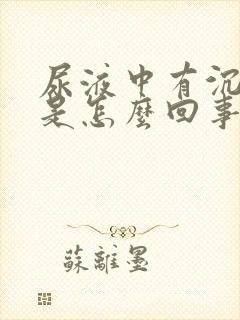 尿液中有沉
是怎麼回事
蘇離墨